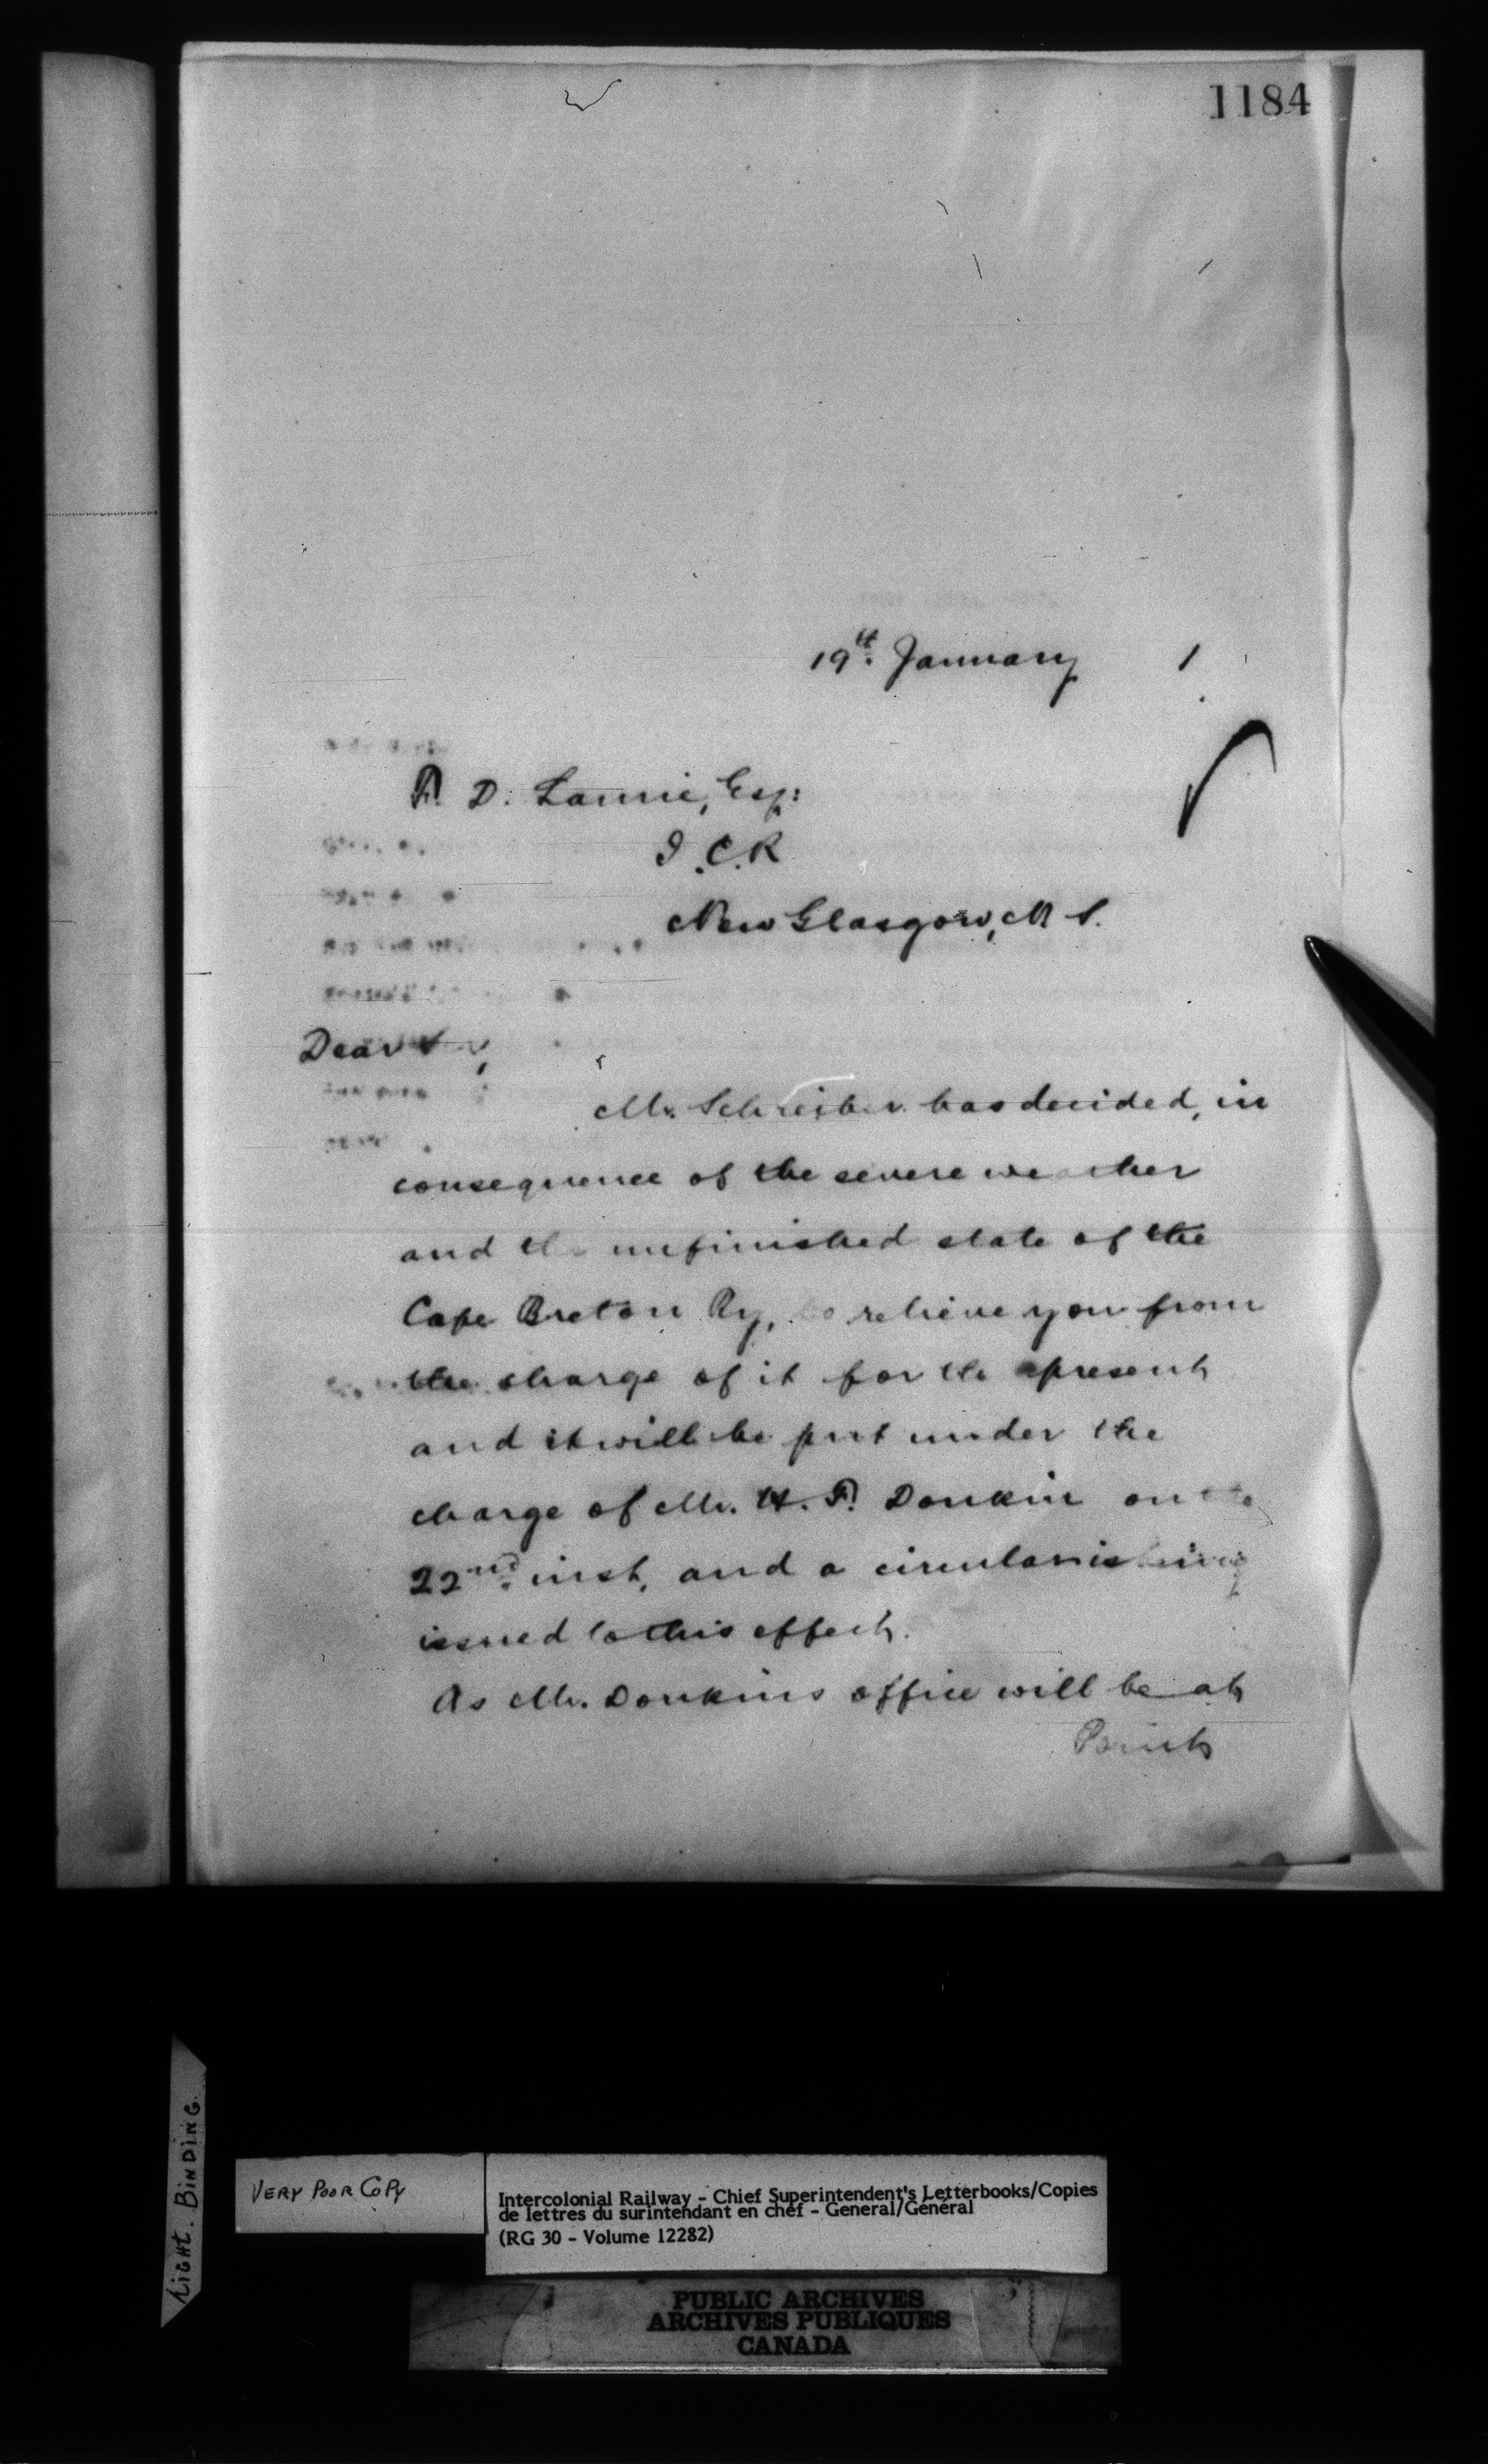 1184
19th. January 1
P. D. Laurie, Esq:
I.C.R
New Glasgow, N S.
Dear
Mr. Schreiber has decided, in
consequence of the severe weather
and the unfinished state of the
Cape Breton Ry, to relieve you from
the charge of it for the present
and it will be put under the
charge of Mr. H. F. Donkin on the
22nd. inst, and a circular is being
issued to this effect.
As Mr. Donkins office will be at
Point
LIGHT. BINDING.
VERY POOR COPY
Intercolonial Railway - Chief Superintendent's Letterbooks/Copies
de lettres du surintendant en chef - General/Général
(RG 30 - Volume 12282)
PUBLIC ARCHIVES
ARCHIVES PUBLIQUES
CANADA